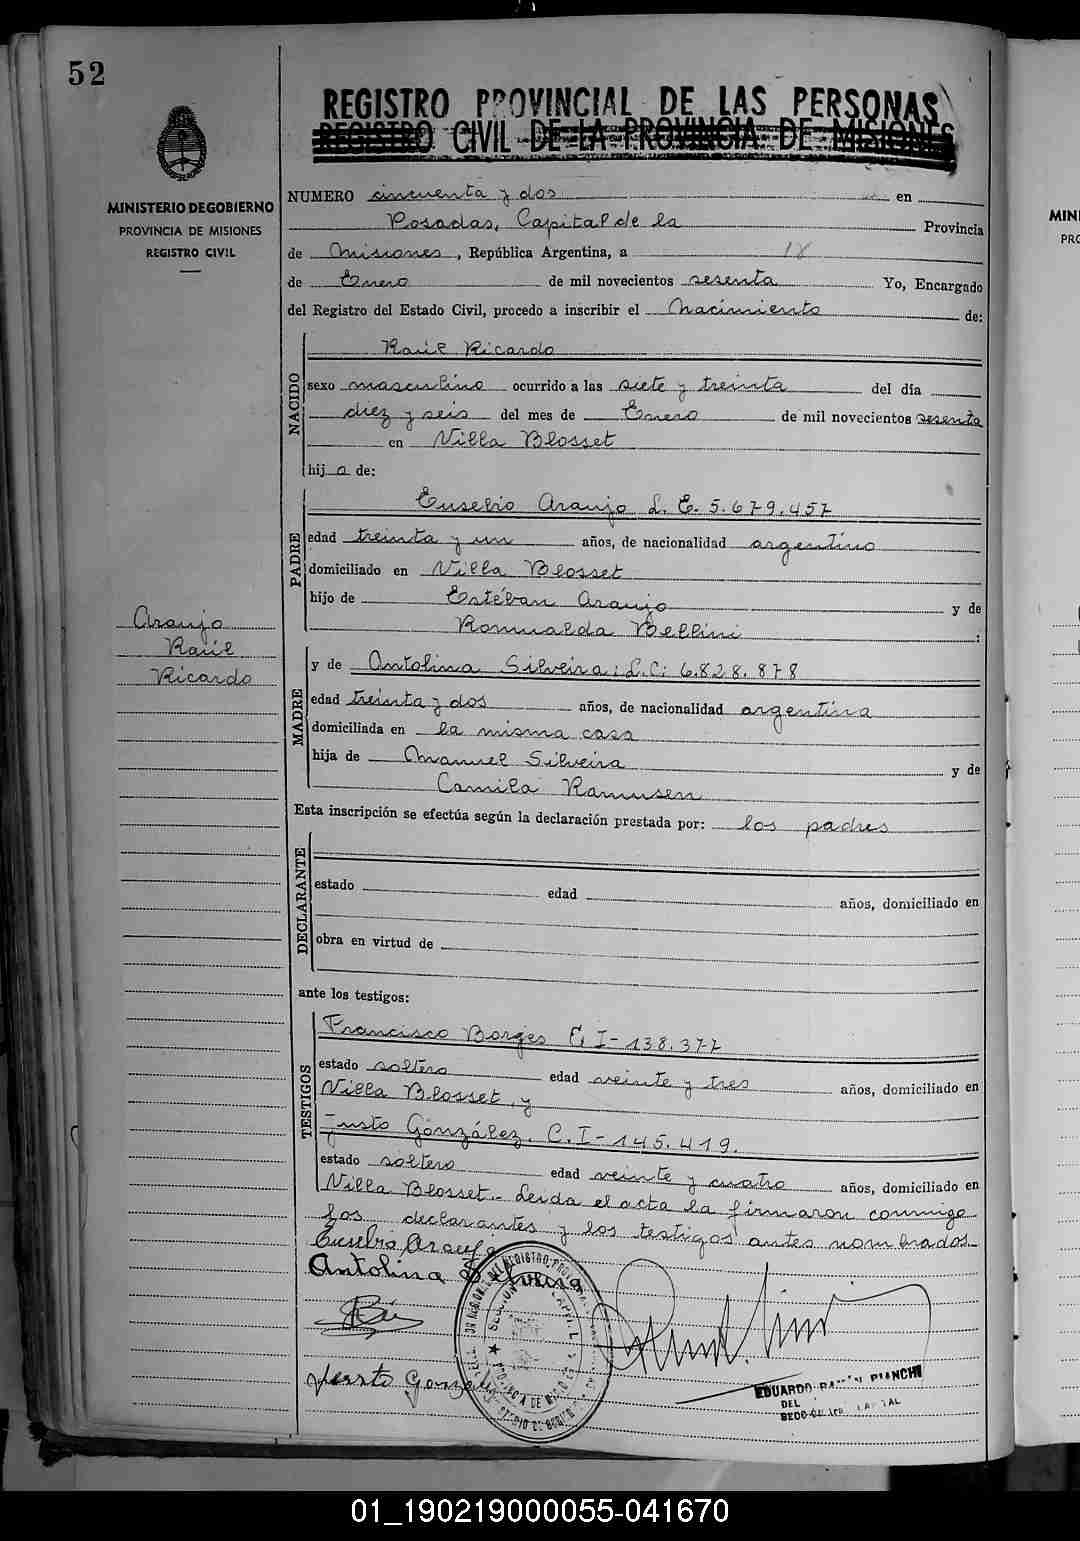 52
REGISTRO PROVINCIAL DE LAS PERSONAS
REGISTRO CIVIL DE LA PROVINCIA DE MISIONES
MINISTERIO DE GOBIERNO
PROVINCIA DE MISIONES
REGISTRO CIVIL
NUMERO cincuenta y dos en
Posadas, Capital de la Provincia
de Misiones, República Argentina, a 18
de Enero de mil novecientos sesenta Yo, Encargado
del Registro del Estado Civil, procedo a inscribir el Nacimiento de:
NACIDO
Raúl Ricardo
sexo masculino ocurrido a las siete y treinta del día
diez y seis del mes de Enero de mil novecientos sesenta
en Villa Blosset
hijo de:
PADRE
Eusebio Araujo L.E. 5.679.457
edad treinta y un años, de nacionalidad argentino
domiciliado en Villa Blosset
hijo de Estéban Araujo y de
Romualda Bellini :
Araujo
Raúl
Ricardo
MADRE
y de Antolina Silveira: L.C: 6.828.878
edad treinta y dos años, de nacionalidad argentina
domiciliada en la misma casa
hija de Manuel Silveira y de
Camila Ramusen
Esta inscripción se efectúa según la declaración prestada por: los padres
DECLARANTE
estado edad años, domiciliado en
obra en virtud de
ante los testigos:
TESTIGOS
Francisco Borges C, I-138.377
estado soltero edad veinte y tres años, domiciliado en
Villa Blosset, y
Justo González. C.I-145.419.
estado soltero edad veinte y cuatro años, domiciliado en
Villa Blosset.- Leida el acta la firmaron conmigo
los declarantes y los testigos antes nombrados-
Eusebio Araujo
Antolina
Justo Gonzalez
EDUARDO RAMÓN BIANCHI
DEL
MINI
PRO
01_190219000055-041670